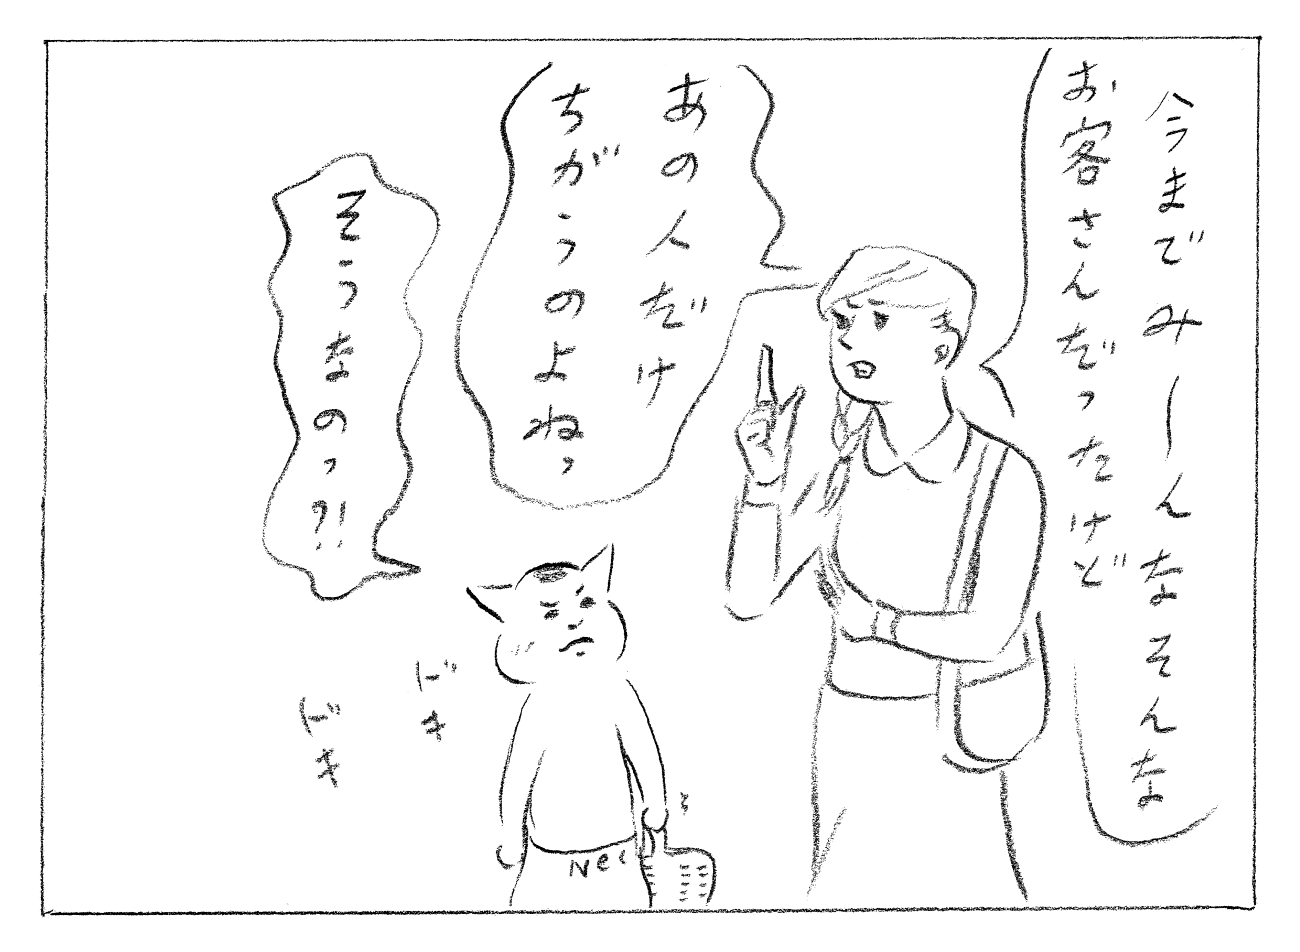 今までみーんなそんな
お客さんだったけど
あの人だけ
ちがうのよねっ
そうなのっ?!
ドキ
ドキ
Nei